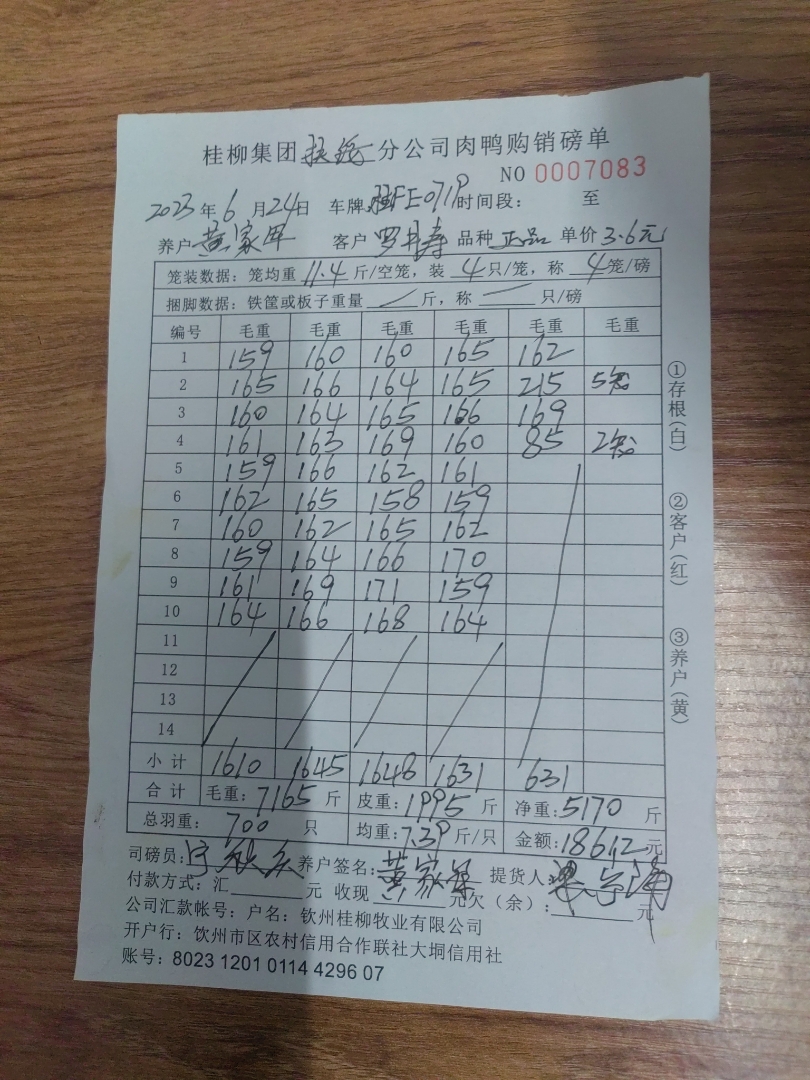 桂柳集团扶绥分公司肉鸭购销磅单
NO 0007083
2023年6月24日 车牌:桂FE071P时间段: 至
养户黄家军 客户 罗书寿 品种 正品 单价3.6元
笼装数据:笼均重11.4斤/空笼,装4只/笼,称4笼/磅
捆脚数据:铁筐或板子重量/斤,称/只/磅
编号 毛重 毛重 毛重 毛重 毛重 毛重
1 159 160 160 165 162
2 165 166 164 165 215 5笼
3 160 164 165 166 169
4 161 163 169 160 85 2笼
5 159 166 162 161
6 162 165 158 159
7 160 162 165 162
8 159 164 166 170
9 161 169 171 159
10 164 166 168 164
11
12
13
14
小计 1610 1645 1648 1631 631
合计 毛重:7165斤 皮重:1995斤 净重:5170斤
总羽重:700只 均重:7.39斤/只 金额:18612元
司磅员: 养户签名:黄家军 提货人:
付款方式:汇 元 收现 元欠(余): 元
公司汇款帐号:户名:钦州桂柳牧业有限公司
开户行:钦州市区农村信用合作联社大垌信用社
账号:8023 1201 0114 4296 07
①存根(白)
②客户(红)
③养户(黄)